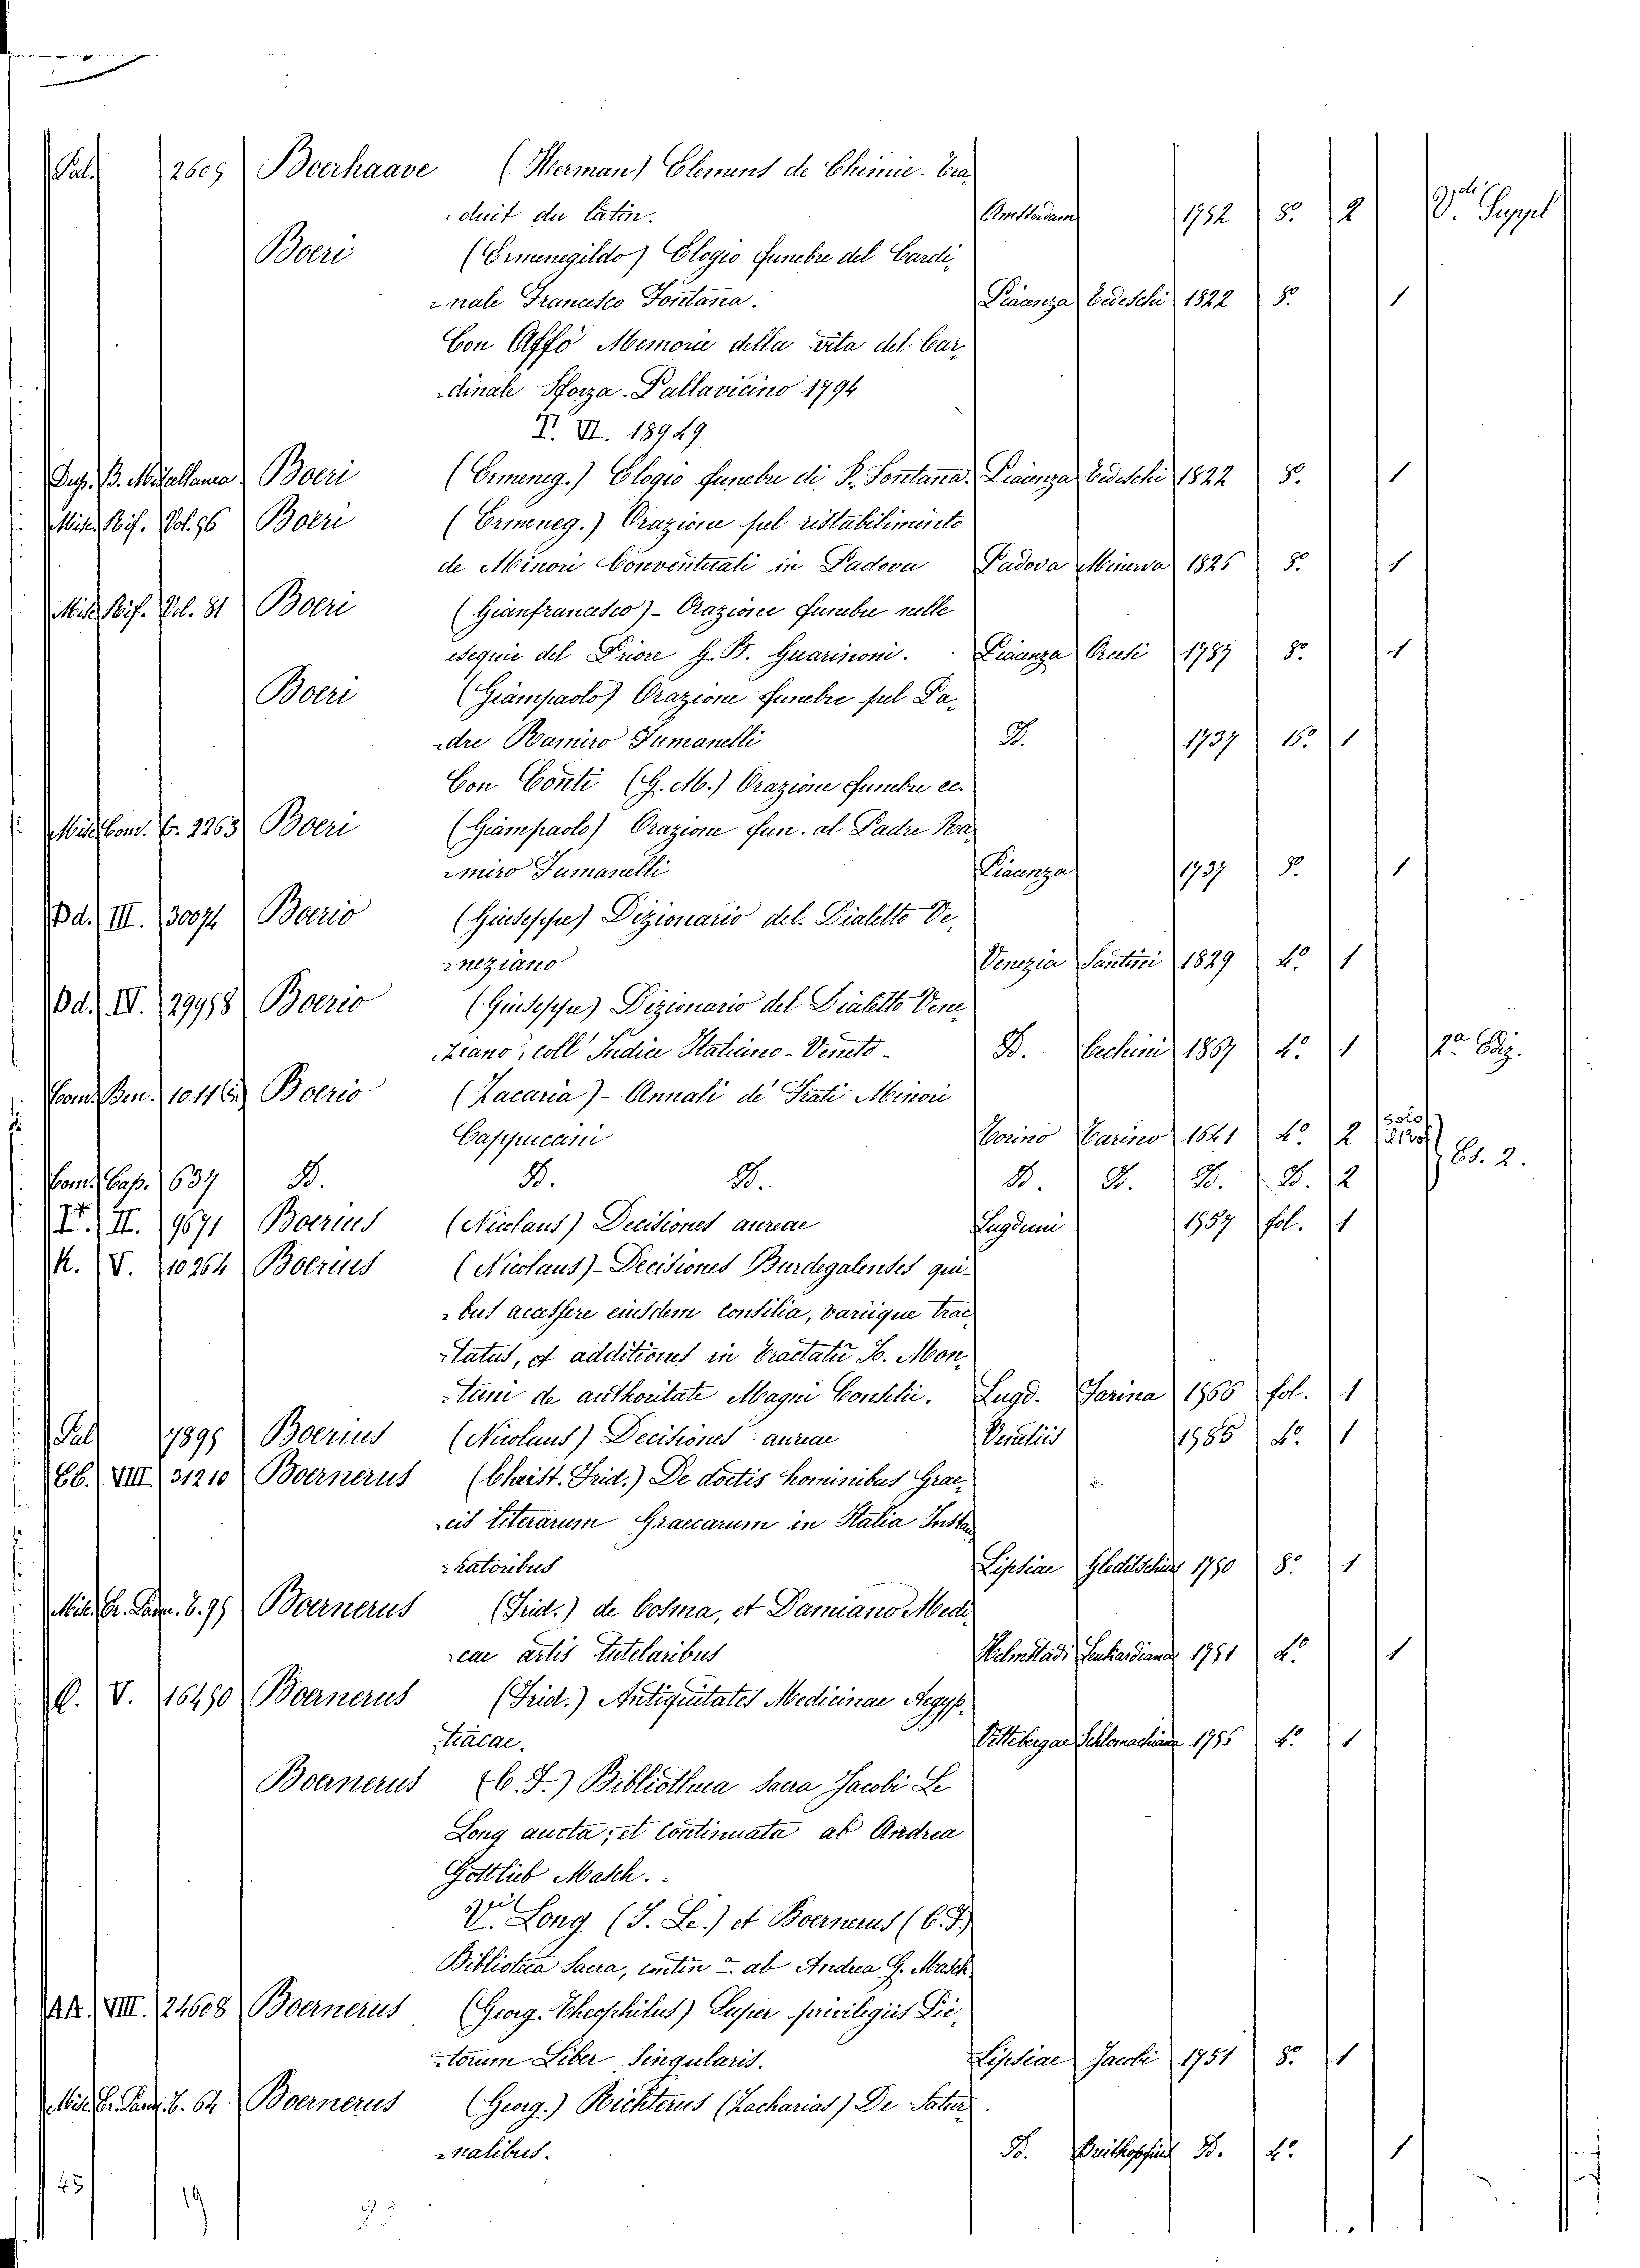 Pal. 2609 Boerhaave (Herman) Elemens de Chimie. Tra-
duit du latin. Amsterdam 1752 8° 2 V. Suppel
Boeri (Ermenegildo) Elogio funebre del Cardi-
nale Francesco Fontana. Piacenza Tedeschi 1822 8° 1
Con Affò Memorie della vita del Car-
dinale Sforza-Pallavicino 1794
T. VI. 18949
B. Boeri (Ermeneg.) Elogio funebre di F. Fontana. Piacenza Tedeschi 1822 8° 1
Misc. Rif. Vol. 96 Boeri (Ermeneg.) Orazione sul ristabilimento
de Minori Conventuali in Padova Padova Minerva 1825 8° 1
Misc. Rif. Vol. 81 Boeri (Gianfrancesco) - Orazione funebre nelle
esequie del Priore G. B. Guarinoni. Piacenza Orcesi 1787 8° 1
Boeri (Giampaolo) Orazione funebre sul Pa-
dre Ramiro Tumanelli D. 1737 15° 1
Con Conti (G. M.) Orazione funebre ec.
Misc. Com. C. 2263 Boeri (Giampaolo) Orazione fun. al Padre Ra-
miro Tumanelli Piacenza 1737 8° 1
Dd. III. 30074 Boerio (Giuseppe) Dizionario del Dialetto Ve-
neziano Venezia Santini 1829 4° 1
Dd. IV. 29998 Boerio (Giuseppe) Dizionario del Dialetto Vene-
ziano, coll' Indice Italiano-Veneto - D. Cecchini 1867 4° 1 2a Ediz.
Com. Ben. 1011 Boerio (Zacaria) - Annali de' Frati Minori
Cappuccini Torino Tarino 1641 4° 2 solo
Com. Cap. 637 D. D. D. D. D. D. D. 2 Es. 2.
II. 9671 Boerius (Nicolaus) Decisiones aureae Lugduni 1587 fol. 1
K. V. 10264 Boerius (Nicolaus) - Decisiones Burdegalenses qui-
bus accessere eiusdem consilia, variique trac-
tatus, et additiones in tractatu Jo. Mon-
tani de authoritate Magni Consilii. Lugd. Farina 1566 fol. 1
Pal 7899 Boerius (Nicolaus) Decisiones aureae Venetiis 1585 4° 1
Bb. VIII 31210 Boernerus (Christ. Frid.) De doctis hominibus Grae-
cis literarum Graecarum in Italia Instau-
ratoribus Lipsiae Gleditschius 1750 8° 1
Misc. Er. 6.95 Boernerus (Frid.) de Cosma, et Damiano Medi-
cae artis tutelaribus Helmstadi Leuhardiana 1751 4° 1
V. 16490 Boernerus (Frid.) Antiquitates Medicinae Aegyp-
tiacae. Vitebergae Schlomachiana 1755 4° 1
Boernerus (C. F.) Bibliotheca sacra Jacobi Le
Long aucta, et continuata ab Andrea
Gottlieb Masch. -
V. Long (J. Le.) et Boernerus (C. F.)
Bibliotca Sacra, contin ab Andrea G. Masch
AA. VIII. 24608 Boernerus (Georg. Theophilus) Super privilegiis Pic-
torum Liber Singularis. Lipsiae Jacobi 1751 8° 1
Misc. Er. 6. 64 Boernerus (Georg.) Richterus (Zacharias) De Satur-
nalibus. D. Breitkopfius D. 4° 1
45 19